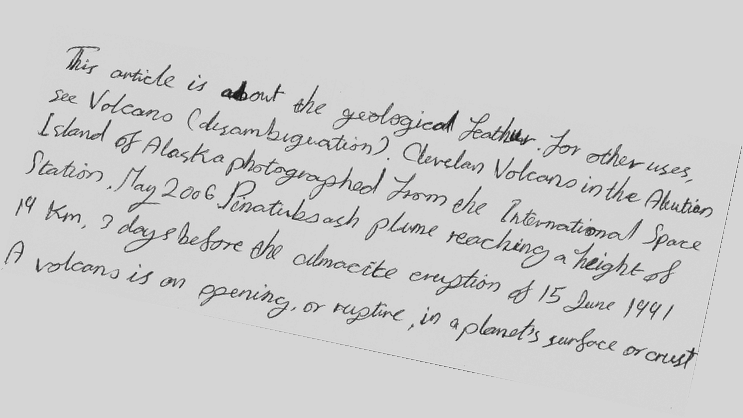 This article is about the geological feather. for other uses,
see Volcano (disambiguation). Clevelan Volcano in the Aleution
Island of Alaska photographed from the International Space
Station, May 2006. Pinatubo ash plume reaching a height of
19 Km, 3 days before the climacite eruption of 15 June 1991
A volcano is an opening, or rupture, in a planet's surface or crust